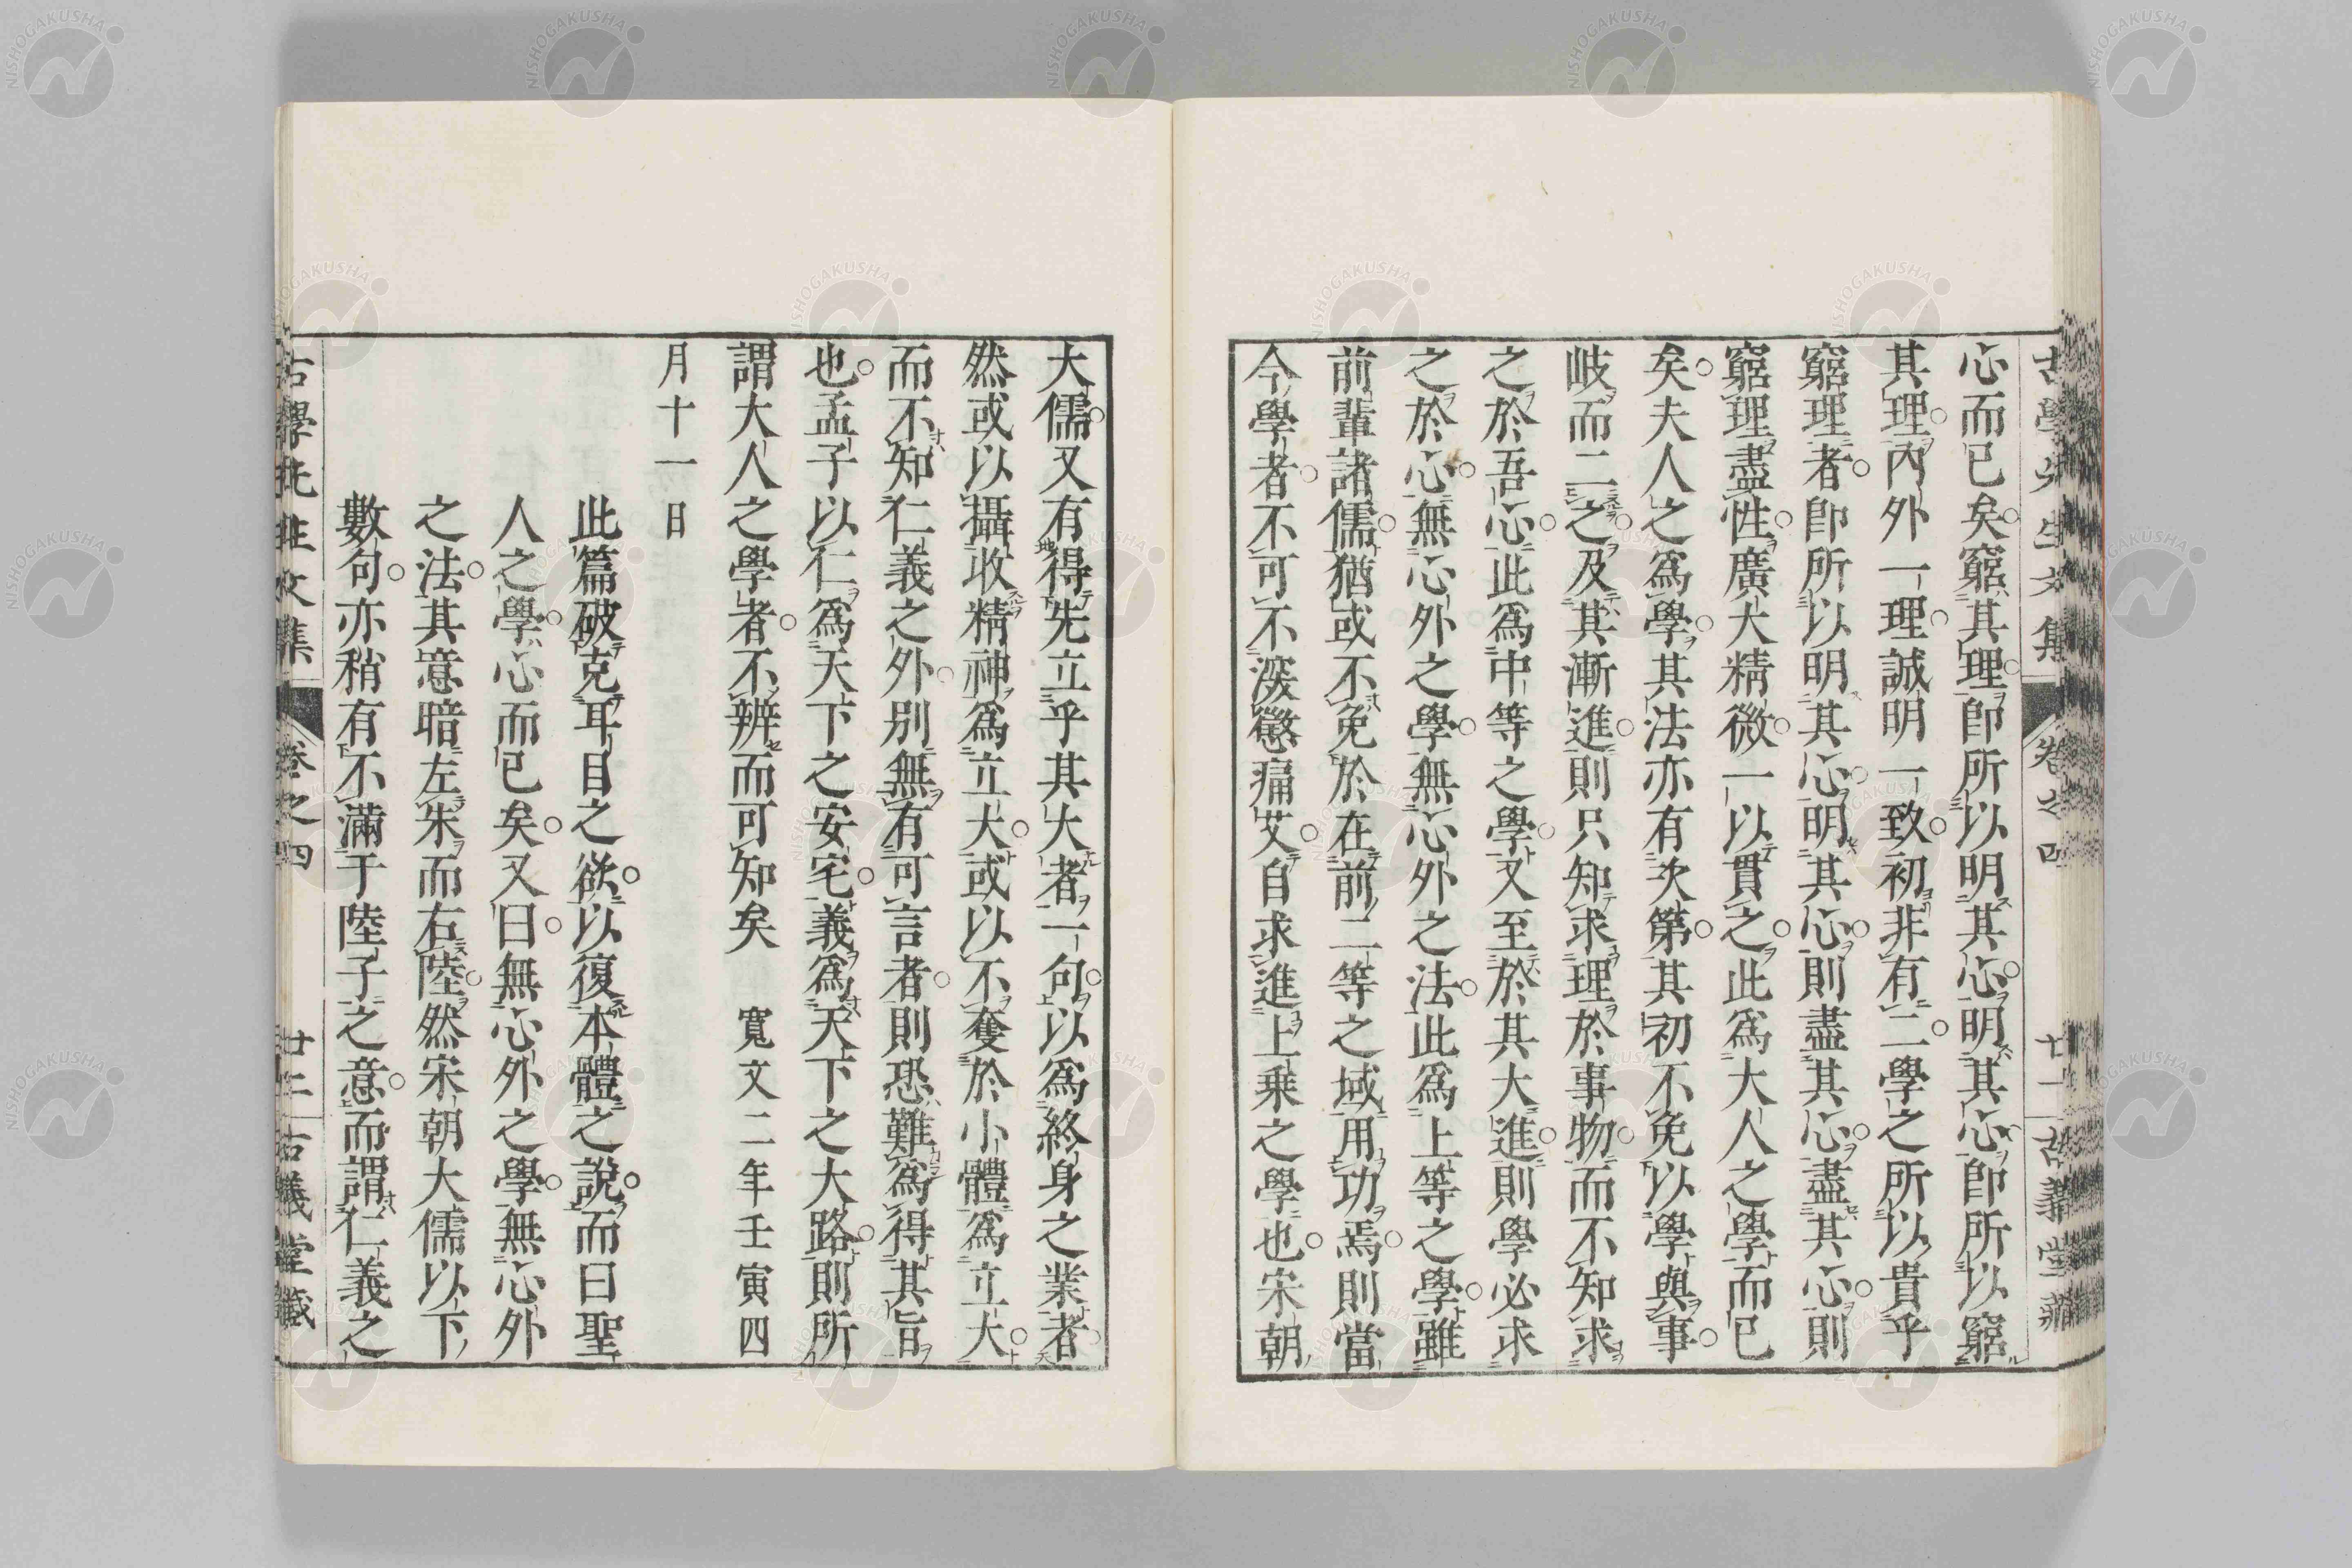 心而已矣。窮其理。即所以明其心。明其心。即所以窮
其理。內外一理。誠明一致。初非有二。學之所以貴乎
窮理者。即所以明其心。明其心。則盡其心。盡其心。則
窮理盡性。廣大精微。一以貫之。此爲大人之學而已
矣。夫人之爲學。其法亦有次第。其初不免以學與事。
岐而二之。及其漸進。則只知求理於事物。而不知求
之於吾心。此爲中等之學。又至於其大進。則學必求
之於心。無心外之學。無心外之法。此爲上等之學。雖
前輩諸儒。猶或不免於在前二等之域用功焉。則當
今學者。不可不深懲痛艾。自求進上乘之學也。宋朝
大儒。又有得先立乎其大者一句。以爲終身之業者。
然或以攝收精神爲立大。或以不奪於小體爲立大。
而不知仁義之外。別無有可言者。則恐難爲得其旨
也。孟子以仁爲天下之安宅。義爲天下之大路。則所
謂大人之學者。不辨而可知矣 寬文二年壬寅四
月十一日
此篇破克耳目之欲。以復本體之說。而曰聖
人之學。心而已矣。又曰。無心外之學。無心外
之法。其意暗左朱而右陸。然宋朝大儒以下
數句。亦稍有不滿于陸子之意。而謂仁義之
古學先生文集 卷之四 廿二 古義堂藏